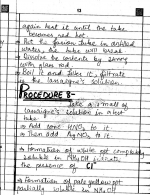 again heat it until the tube
becomes red hot
→ Put the fusion tube in distilled
water, the tube will break
→ Dissolve the contents by stirring
with glass rod
→ Boil it and filter it, filtrate
the lassaigne's solution
PROCEDURE 8-
Take a small of
lassaigne's solution in a test
tube
→ Add conc HNO3 to it
→ Then add AgNO3
→ Formation of white ppt completely
soluble in NH4OH
the presence of Cl
→ Formation of pale yellow ppt
partially soluble NH4OH